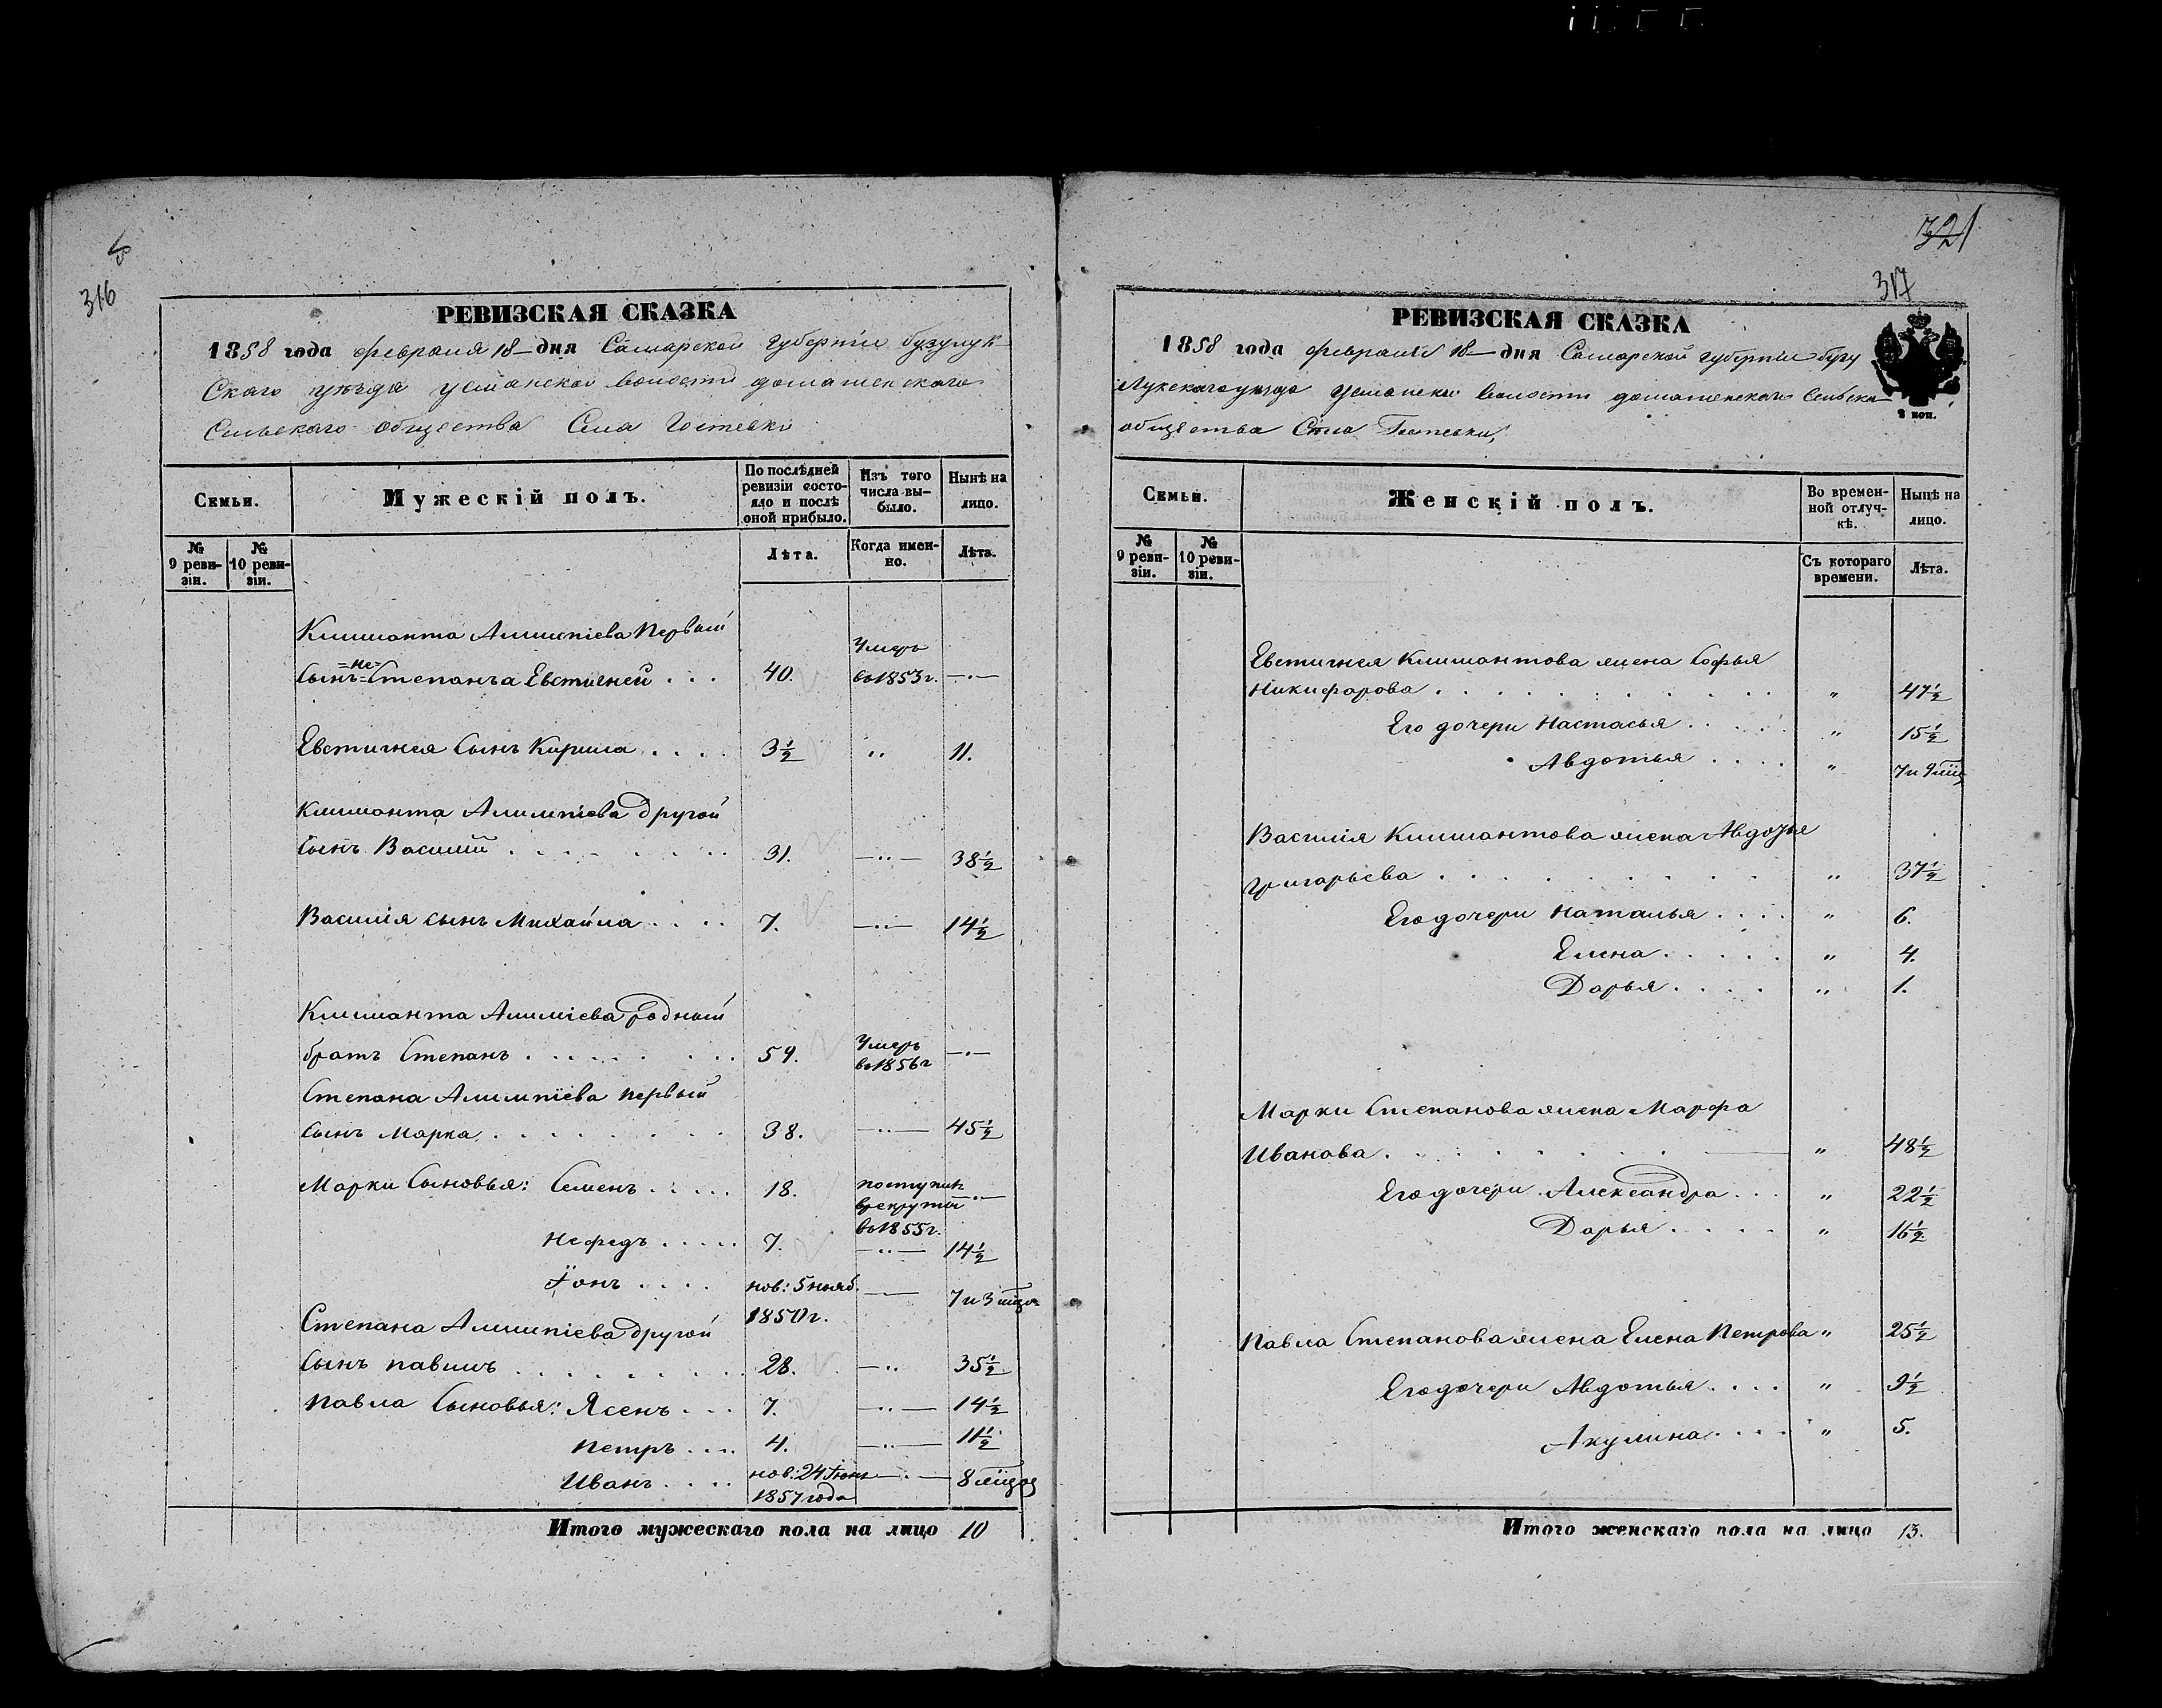 316
РЕВИЗСКАЯ СКАЗКА
1858 года февраля 18 дня Самарской губерніи бузулук
скаго уѣзда усманской волости домашенскаго
Сельскаго общества Села Гостевки
Семьи.
Мужескій полъ.
По послѣдней ревизіи состояло и послѣ оной прибыло.
Изъ того числа вы-было.
Нынѣ на лицо.
№ 9 реви-зіи.
№ 10 реви-зіи.
Лѣта.
Когда имен-но.
Лѣта.
Климонта Алимпіева Первый
Сынъ =не= Степанъ а Евстигней . . . 40. Умеръ во 1853 г. —
Евстигнея Сынъ Кирила . . . . 3½ „ 11.
Климонта Алимпіева Другой
Сынъ Василий . . . . . . 31. — 38½
Василія сынъ Михайла . . . . 7. — 14½
Климонта Алимпіева родный
братъ Степанъ . . . . . . 59. Умеръ во 1856 г —
Степана Алимпіева первый
сынъ Марка . . . . . . . 38. — 45½
Марки Сыновья: Семенъ . . . . . 18. поступил в рекруты во 1855 г. —
Нефедъ . . . . . 7. — 14½
Іонъ . . . . нов: 5 нояб. 1850 г. — 7 и 3 мѣця
Степана Алимпіева другой
Сынъ павилъ . . . . . . . 28. — 35½
Павла Сыновья: Ясенъ . . . 7. — 14½
Петръ . . . . 4. — 11½
Иванъ . . . . нов: 24 Іюня 1857 года — 8 мѣцов
Итого мужескаго пола на лицо 10
321
317
РЕВИЗСКАЯ СКАЗКА
1858 года февраля 18 дня Самарской губерніи бузу
лукскаго уѣзда усманской волости домашенскаго Сельска
общества Села Гостевки,
8 коп.
Семьи.
Женскій полъ.
Во времен-ной отлуч-кѣ.
Нынѣ на лицо.
№ 9 реви-зіи.
№ 10 реви-зіи.
Съ котораго времени.
Лѣта.
Евстигнея Климонтова жена Софья
Никифорова . . . . . . . . . . „ 47½
Его дочери Настасья . . . . . „ 15½
Авдотья . . . . „ 7 и 9 мѣц
Василія Климонтова жена Авдотья
Григорьева . . . . . . . . . „ 37½
Его дочери Наталья . . . . „ 6.
Елена . . . . . „ 4.
Дарья . . . . „ 1.
Марки Степанова жена Марфа
Иванова . . . . . . . . „ 48½
Его дочери Александра . . . „ 22½
Дарья . . . . „ 16½
Павла Степанова жена Елена Петрова „ 25½
Его дочери Авдотья . . . . „ 9½
Акулина . . . . „ 5.
Итого женскаго пола на лицо 13.